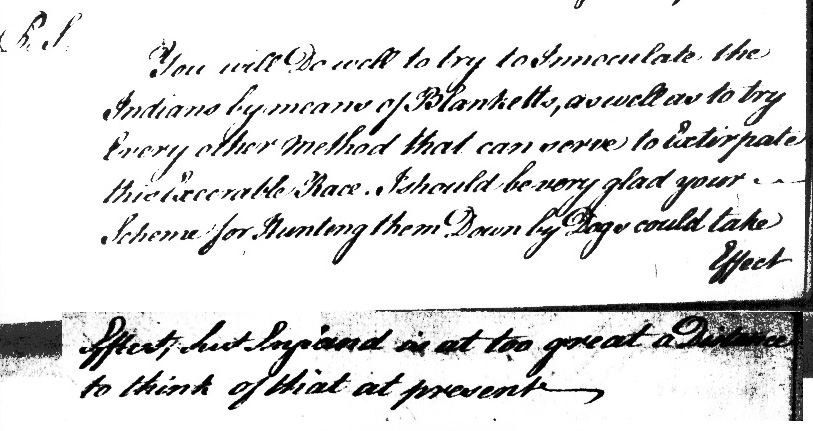 P.S.
You will Do well to try to Innoculate the
Indians by means of Blanketts, as well as to try
Every other Method that can serve to Extirpate
this Execrable Race. I should be very glad your
Scheme for Hunting them Down by Dogs could take
Effect
Effect; but England is at too great a Distance
to think of that at present